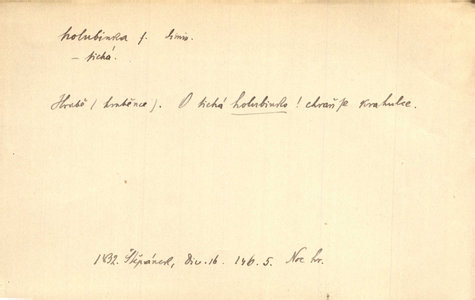 holubinka f. dimin.
– tichá.
Hrabě (hraběnce). O tichá holubinko! chraň se krahulce.
1832. Štěpánek, Div. 16. 146. 5. Noc hr.